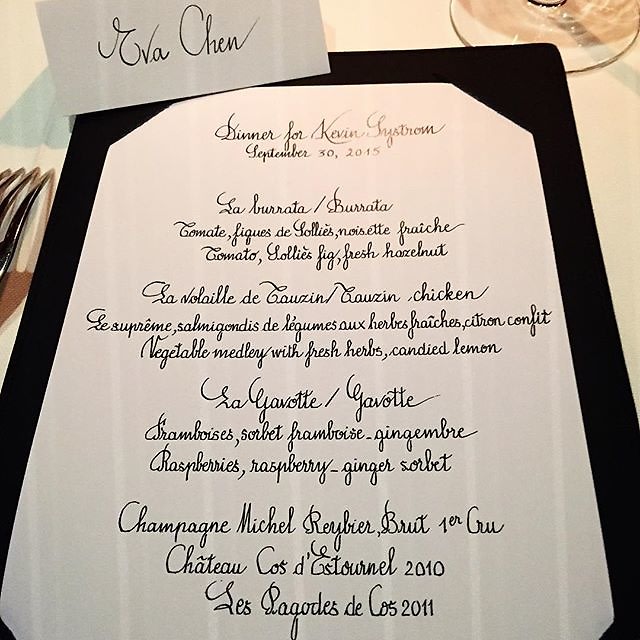 Eva Chen
Dinner for Kevin Systrom
September 30, 2015
La burrata / Burrata
Tomate, figues de Solliès, noisette fraîche
Tomato, Solliès fig, fresh hazelnut
La volaille de Tauzin / Tauzin chicken
Le suprême, salmigondis de légumes aux herbes fraîches, citron confit
Vegetable medley with fresh herbs, candied lemon
La Gavotte / Gavotte
Framboises, sorbet framboise-gingembre
Raspberries, raspberry-ginger sorbet
Champagne Michel Reybier, Brut 1er Cru
Château Cos d'Estournel 2010
Les Pagodes de Cos 2011